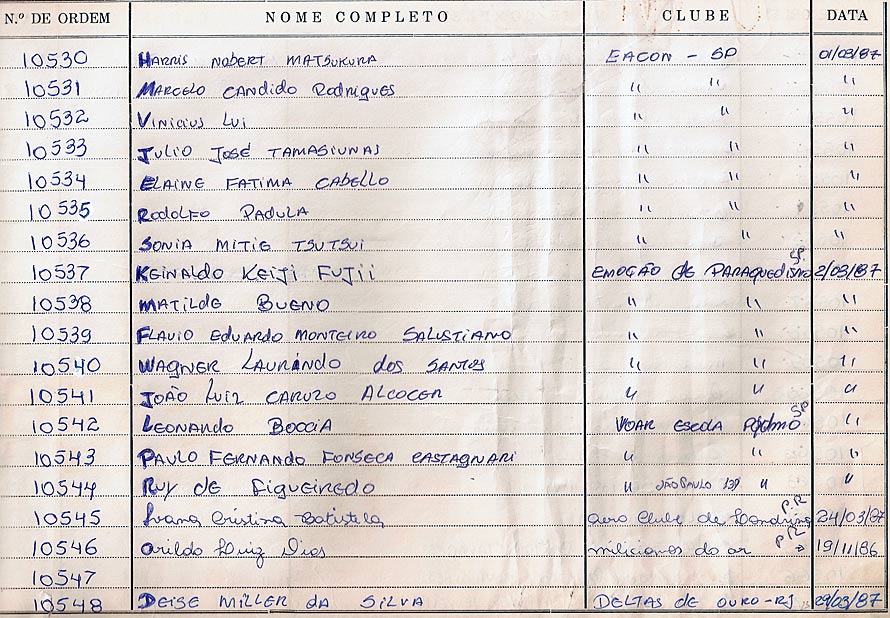 N.º DE ORDEM NOME COMPLETO CLUBE DATA
10530 HARRIS NOBERT MATSUKURA EACON - SP 01/03/87
10531 MARCELO CANDIDO RODRIGUES " " "
10532 VINICIUS LUI " " "
10533 JULIO JOSÉ TAMASIUNAS " " "
10534 ELAINE FATIMA CABELLO " " "
10535 RODOLFO PADULA " " "
10536 SONIA MITIE TSUTSUI " " "
10537 REINALDO KEIJI FUJII EMOÇÃO de PARAQUEDISMO SP. 2/03/87
10538 MATILDE BUENO " " "
10539 FLAVIO EDUARDO MONTEIRO SALUSTIANO " " "
10540 WAGNER LAURINDO dos SANTOS " " "
10541 JOÃO LUIZ CARUZO ALCOCER " " "
10542 LEONARDO BOCCIA VOAR ESCOLA PQDMO SP "
10543 PAULO FERNANDO FONSECA CASTAGNARI " " "
10544 RUY DE FIGUEIREDO " SÃO PAULO " "
10545 Ivana Cristina Batistela aero clube de Londrina P.R 24/03/87
10546 arildo Luiz Dias milicianos do ar PR 19/11/86
10547
10548 DEISE MILLER DA SILVA DELTAS DE OURO-RJ 29/03/87